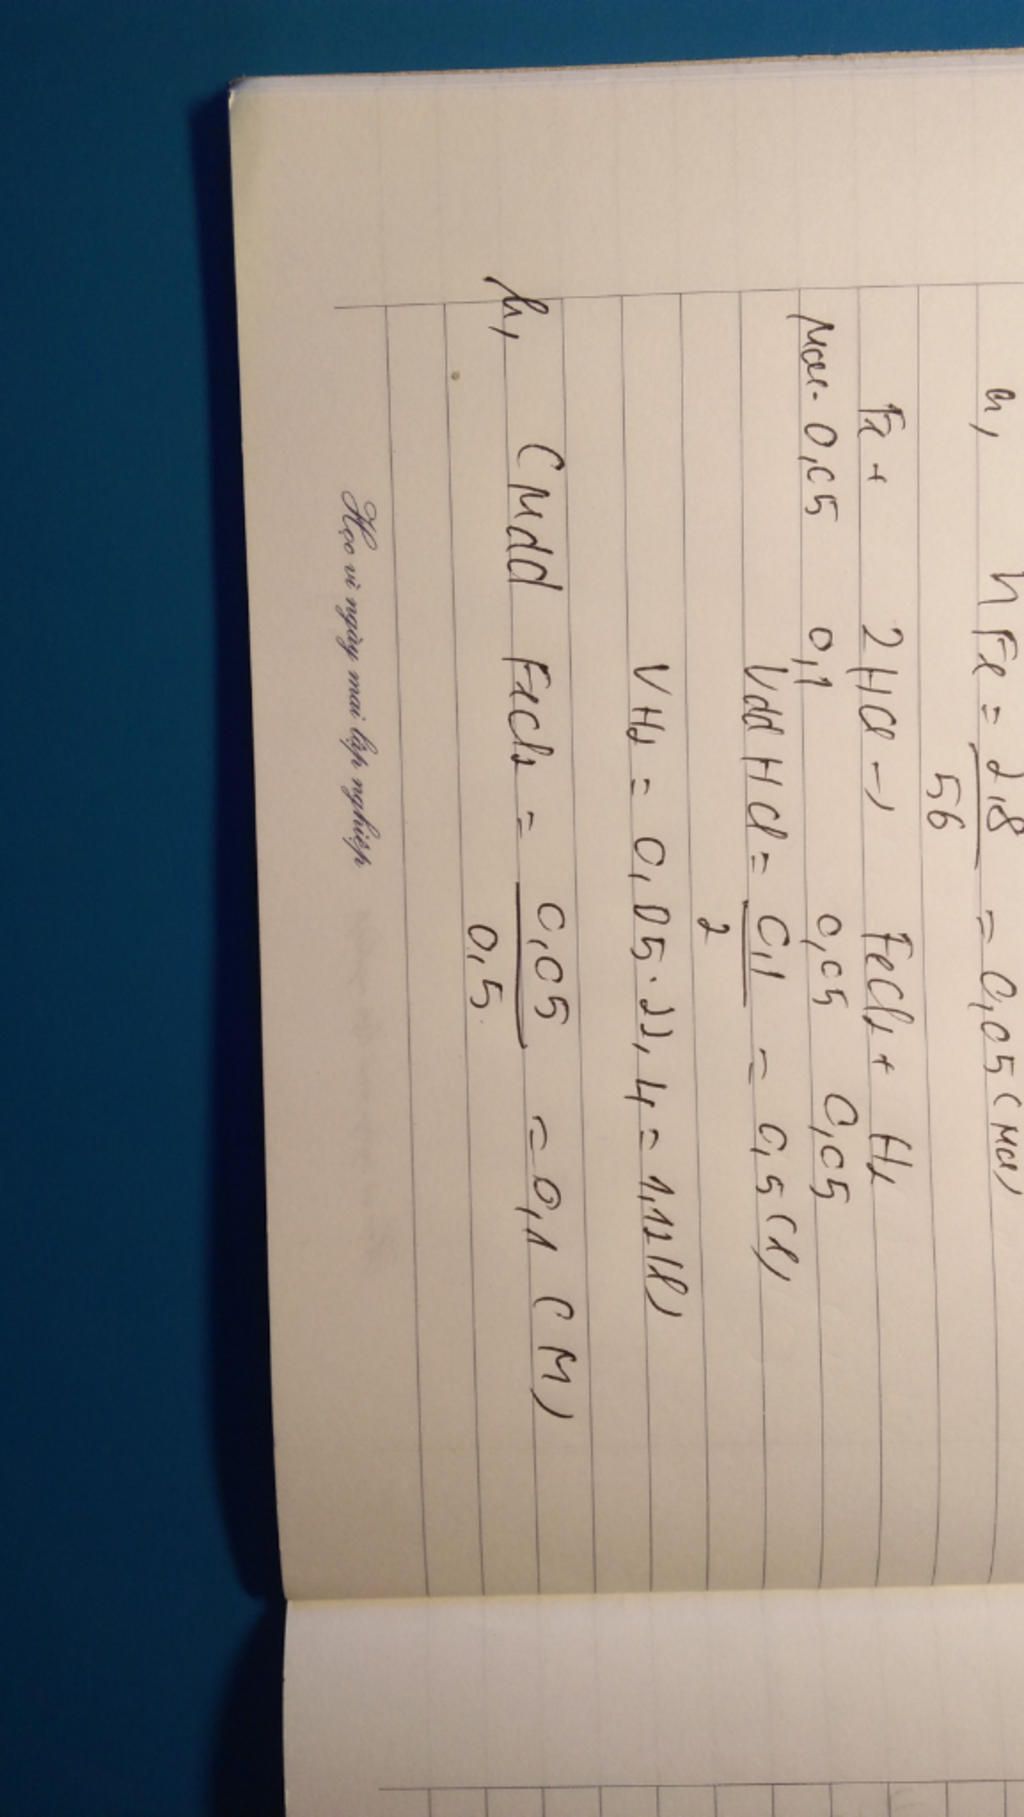 a, nFe = 2,8 / 56 = 0,05 (mol)
Fe + 2HCl → FeCl2 + H2
mol: 0,05 0,1 0,05 0,05
Vdd HCl = 0,1 / 2 = 0,5 (l)
VH2 = 0,05 . 22,4 = 1,12 (l)
b, CMdd FeCl2 = 0,05 / 0,5 = 0,1 (M)
Học vì ngày mai lập nghiệp